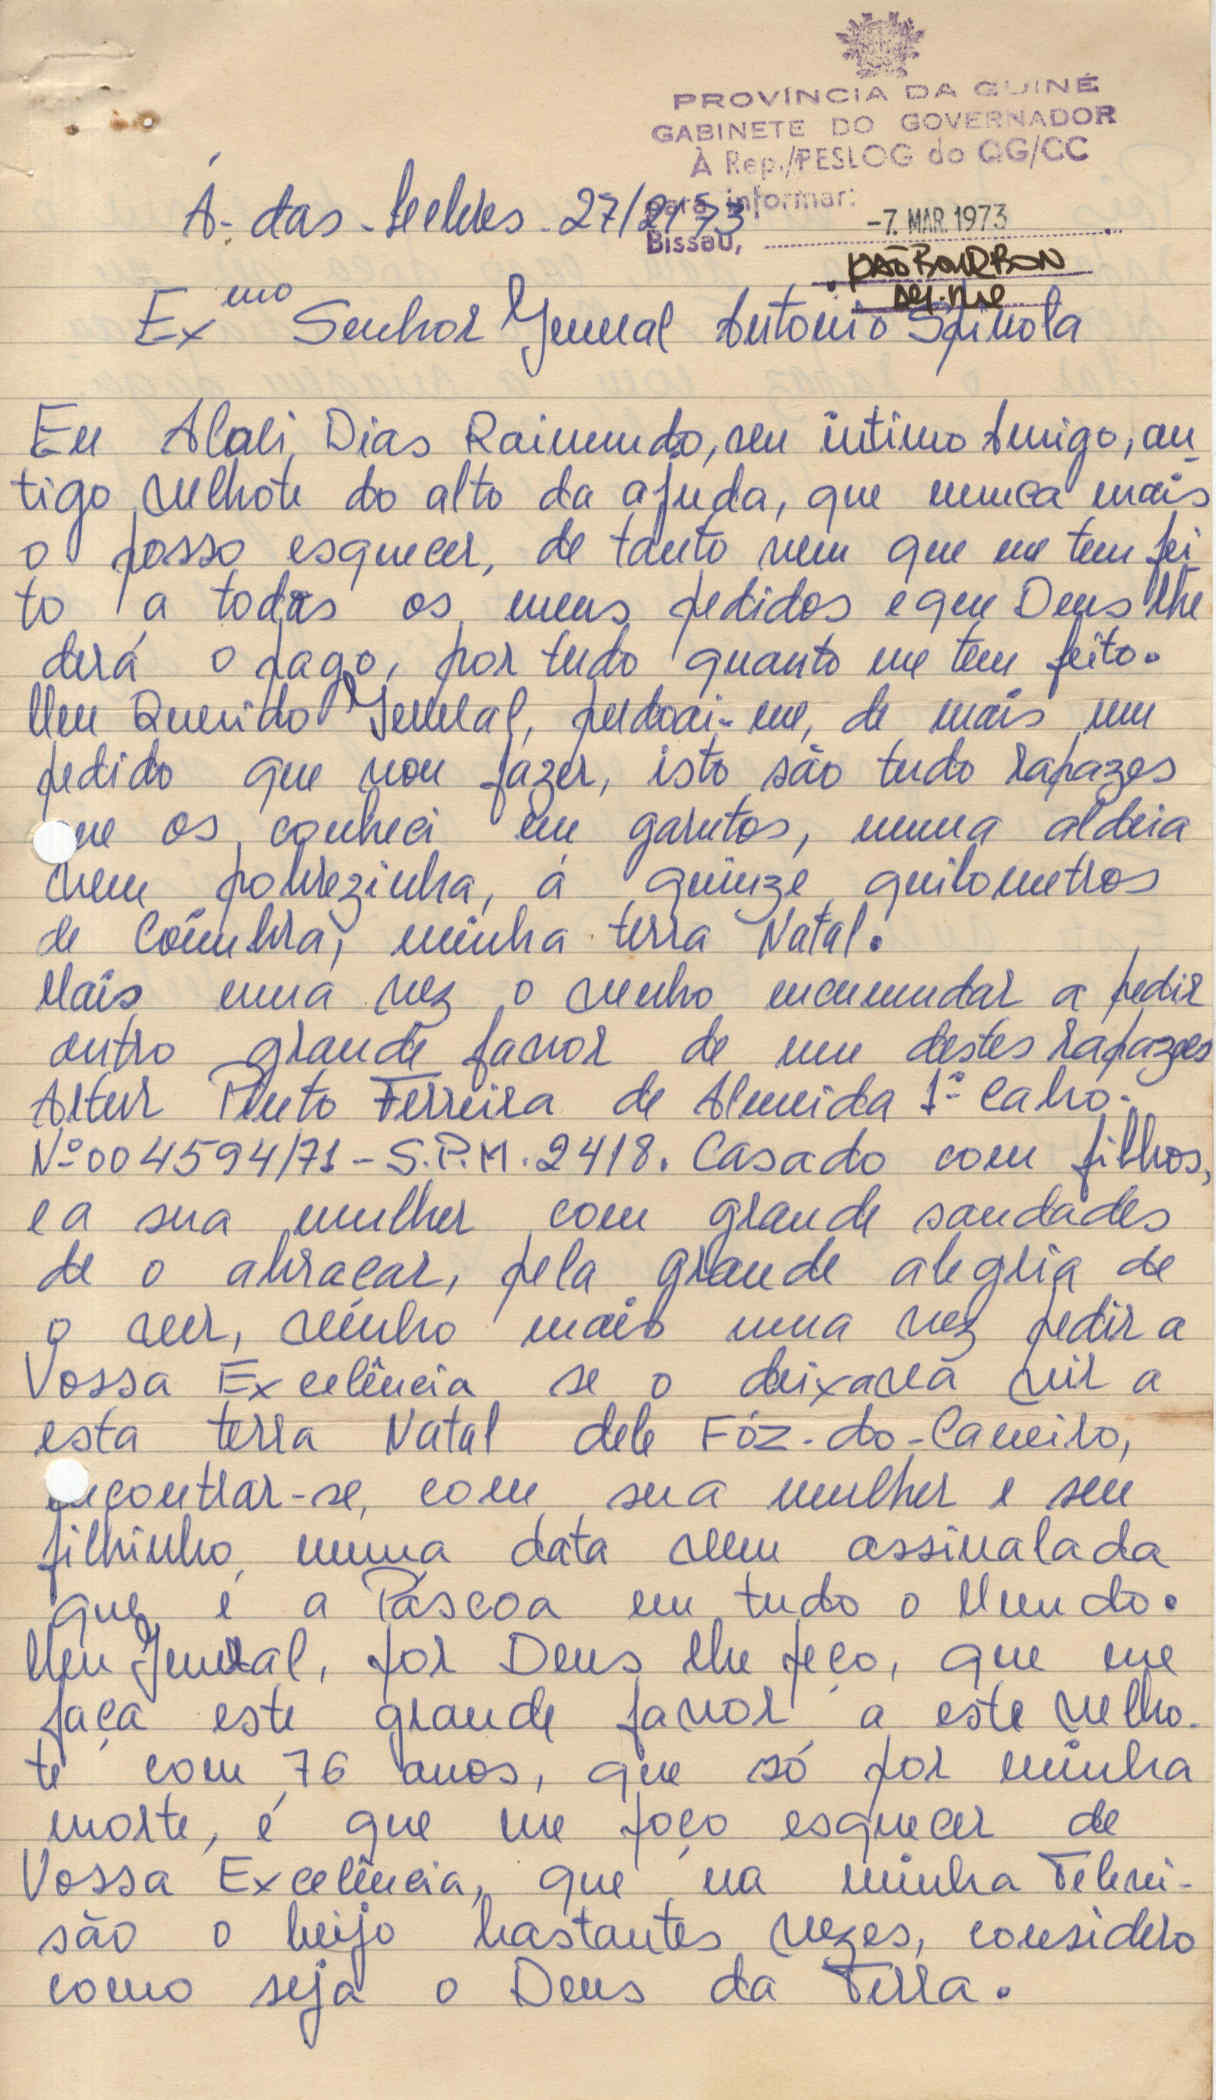 PROVÍNCIA DA GUINÉ
GABINETE DO GOVERNADOR
À Rep./PESLOG do QG/CC
para informar:
Bissau, -7. MAR. 1973
JOÃO BOURBON
Á-das- 27/2/73
Exmo Senhor General Antonio Spinola
Eu Alali Dias Raimundo, seu intimo Amigo, an-
tigo velhote do alto da ajuda, que nunca mais
o posso esquecer, de tanto vem que me tem fei
to a todas os meus pedidos e que Deus lhe
derá o pago, por tudo quanto me tem feito.
Meu Querido General, perdoai-me, de mais um
pedido que vou fazer, isto são tudo rapazes
que os conheci em garutos, numa aldeia
vem pobrezinha, á quinze quilometros
de Coimbra, minha terra Natal.
Mais uma vez o venho incumudar a pedir
outro grande favor de um destes rapazes
Artur Pinto Ferreira de Almeida 1º Cabo-
Nº 004594/71 - S.P.M. 2418. Casado com filhos,
e a sua mulher com grande saudades
de o abraçar, pela grande alegria de
o ver, veinho mais uma vez pedir a
Vossa Excelência se o deixava vir a
esta terra Natal dele Fóz-do-Caneiro,
encontrar-se, com sua mulher e seu
filhinho, numa data vem assinalada
que é a Páscoa em tudo o Mundo.
Meu General, por Deus lhe peço, que me
faça este grande favor a este velho-
te com 76 anos, que só por minha
morte, é que me poço esquecer de
Vossa Excelência, que na minha Televi-
são o beijo bastantes vezes, considero
como seja o Deus da Terra.